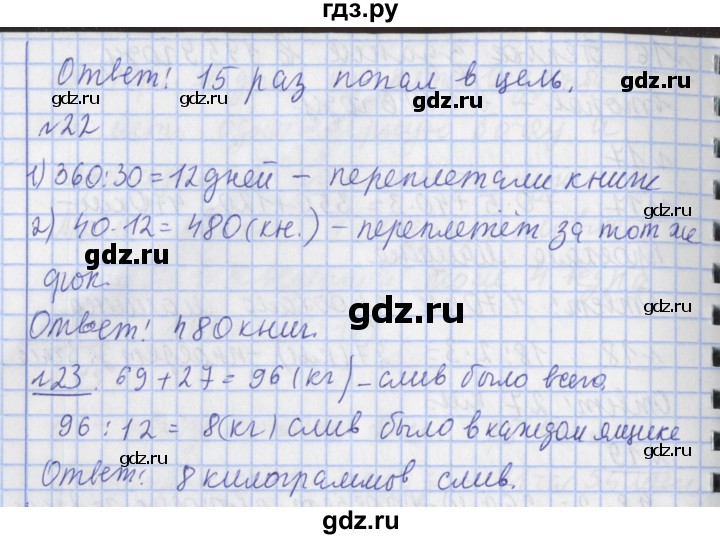 гдз.ру
Ответ! 15 раз попал в цель.
gdz.ru gdz.ru gdz.ru gdz.ru
№22
1) 360:30=12 дней – переплетали книж
gdz.ru gdz.ru
2) 40·12=480(кн.) – переплетёт за тот же
gdz.ru gdz.ru
срок.
Ответ! 480 книг.
gdz.ru gdz.ru gdz.ru
№23. 69+27=96(кг) – слив было всего.
gdz.ru gdz.ru
96:12= 8(кг) слив было в каждом ящике
gdz.ru gdz.ru
Ответ! 8 килограммов слив.
gdz.ru gdz.ru
gdz.ru